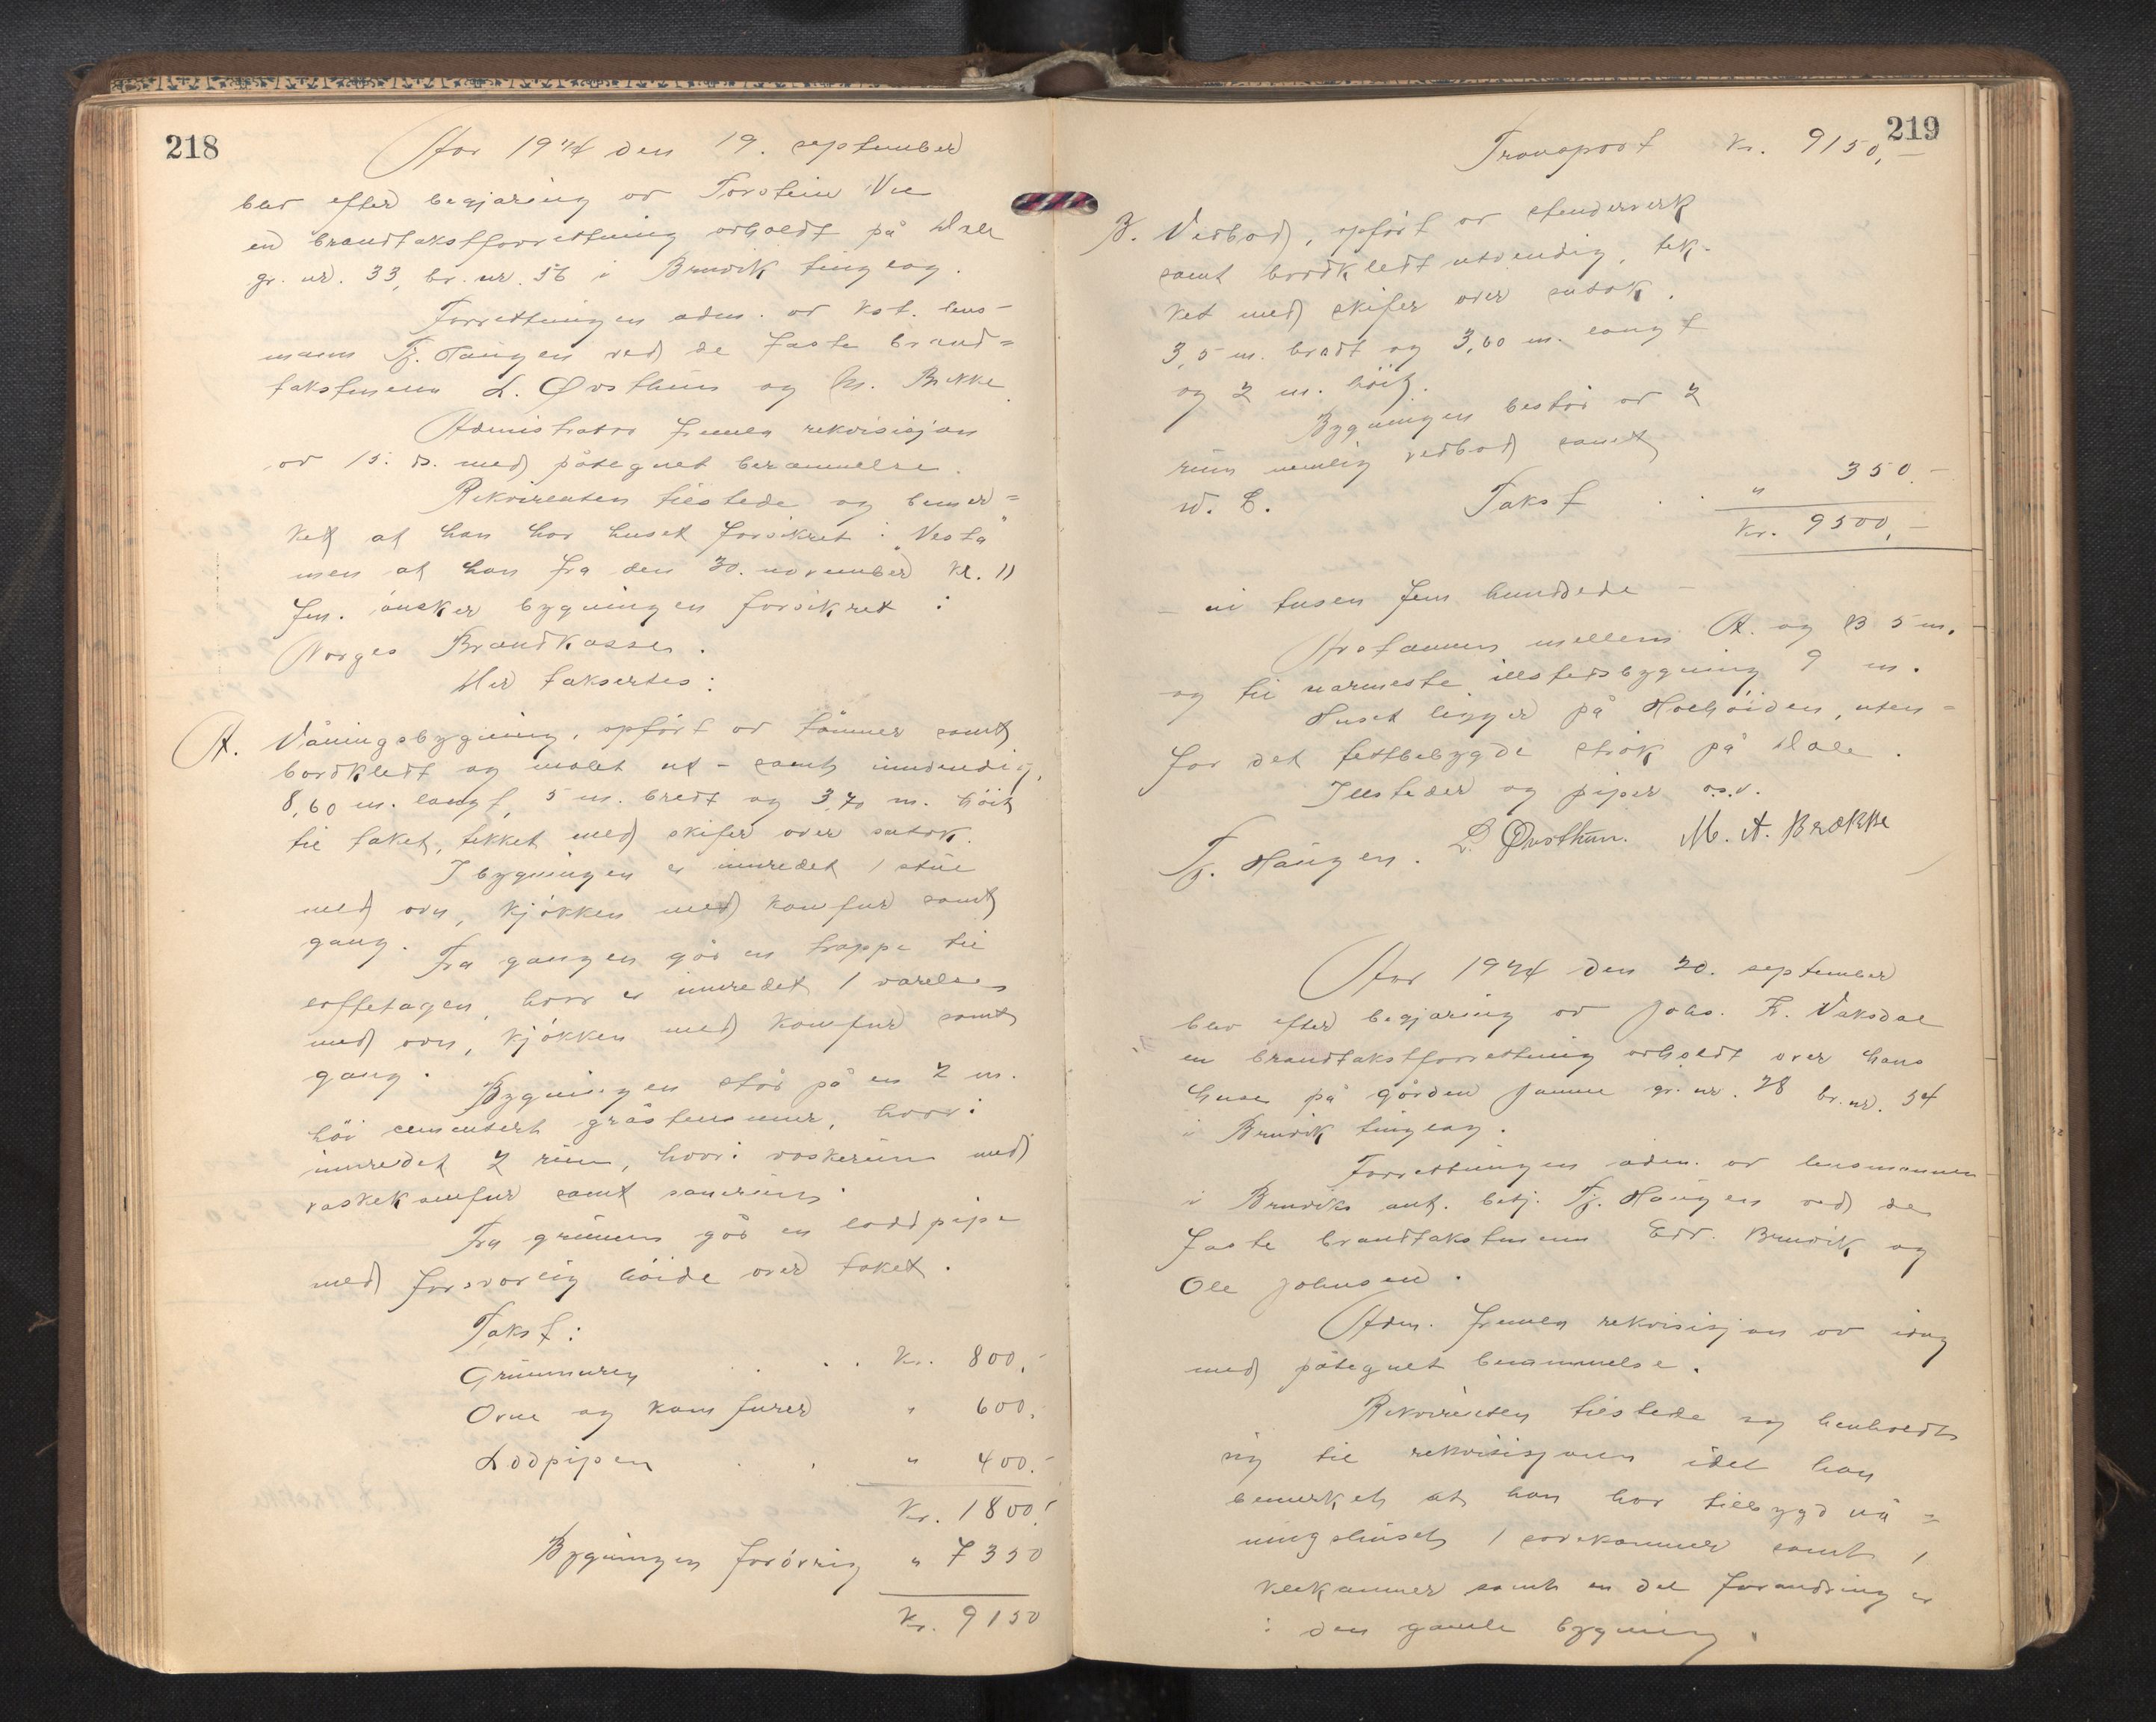 218
Aar 1924 den 19. september
blev efter begjæring av Torstein Vee
en brandtakstforretning avholdt på Dale
gr. nr. 33, br. nr. 56 i Bruvik tinglag.
Forretningen adm. av kst. lens-
mann Tj. Haugen ved de faste brand=
takstmenn L. Øvsthus og M. Brekke.
Administrator fremla rekvisisjon
av 15. ds. med påtegnet berammelse.
Rekvirenten tilstede og bemer=
ket at han har huset forsikret i "Vesta"
men at han fra den 30. november kl. 11
fm. ønsker bygningen forsikret i
Norges Brandkasse.
Her taksertes:
A. Våningsbygning, opført av tømmer samt
bordkledt og malet ut- samt innvendig,
8,60 m. langt, 5 m. bredt og 3,70 m. høit
til taket, tekket med skifer over sutak.
I bygningen er innredet 1 stue
med ovn, kjøkken med komfur samt
gang.
Fra gangen går en trappe til
loftetagen, hvor er innredet 1 værelse
med ovn, kjøkken med komfur samt
gang.
Bygningen står på en 2 m.
høi cementert gråstensmur, hvori
innredet 2 rum, hvori vaskerum med
vaskekomfur samt
Fra grunnen går en loddpipe
med forsvarlig høide over taket.
Takst:
Grunnmuren . . . Kr. 800,-
Ovne og komfurer " 600,
Lodpipen . . " 400.-
Kr. 1800,-
Bygningen forøvrig " 7350
Kr. 9150
219
Transport Kr. 9150,-
B. Vedbod, opført av stenderverk
samt bordkledt utvendig, tek-
ket med skifer over sutak.
3,5 m. bredt og 3,60 m. langt
og 2 m. høit.
Bygningen består av 2
rum nemlig vedbod samt
W. C. Takst . . " 350.-
Kr. 9500,-
- ni tusen fem hundrede -
Avstanden mellem A. og B 5 m.
og til nærmeste illstedsbygning 9 m.
Huset ligger på Helhøiden, uten=
for det tettbebygde strøk på Dale.
Illsteder og piper o.s.v.
Tj. Haugen. L. Øvsthus. M. A. Brekke
Aar 1924 den 20. september
blev efter begjæring av Johs. F. Vaksdal
en brandtakstforretning avholdt over hans
huse på gården Jamne gr. nr. 28 br. nr. 54
i Bruvik tinglag.
Forretningen adm. av lensmannen
i Bruviks aut. betj. Tj. Haugen ved de
faste brandtakstmenn Edv. Bruvik og
Ole Johnsen.
Adm. fremla rekvisisjon av idag
med påtegnet berammelse.
Rekvirenten tilstede og henholdt
sig til rekvisisjonen idet han
bemerket at han har tilbygd vå=
ningshuset 1 sovekammer samt 1
klekammer samt en del forandring er
i den gamle bygning.